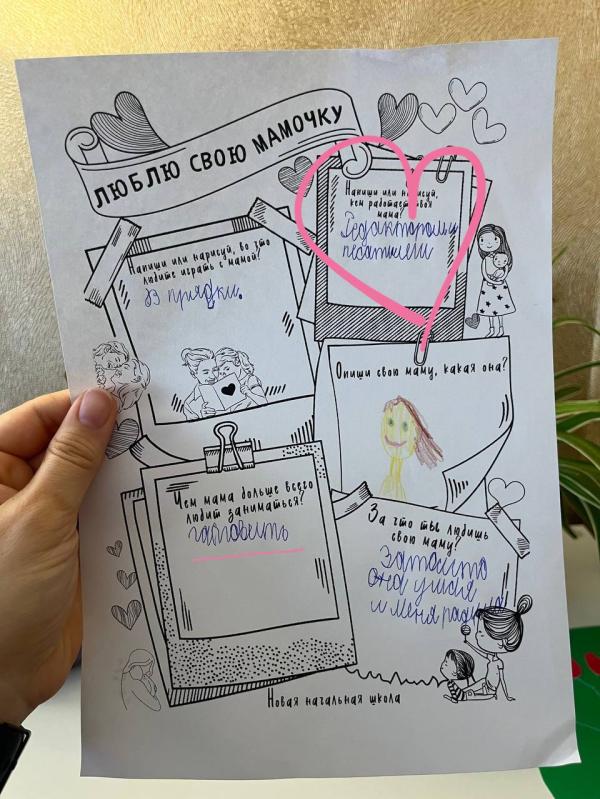 ЛЮБЛЮ СВОЮ МАМОЧКУ
Напиши или нарисуй,
кем работает твоя
мама?
Редактором и
песателем
Напиши или нарисуй, во что
любите играть с мамой?
В прядки.
Опиши свою маму, какая она?
Чем мама больше всего
любит заниматься?
гатовить
За что ты любишь
свою маму?
затошто
она у меня
и меня
Новая начальная школа